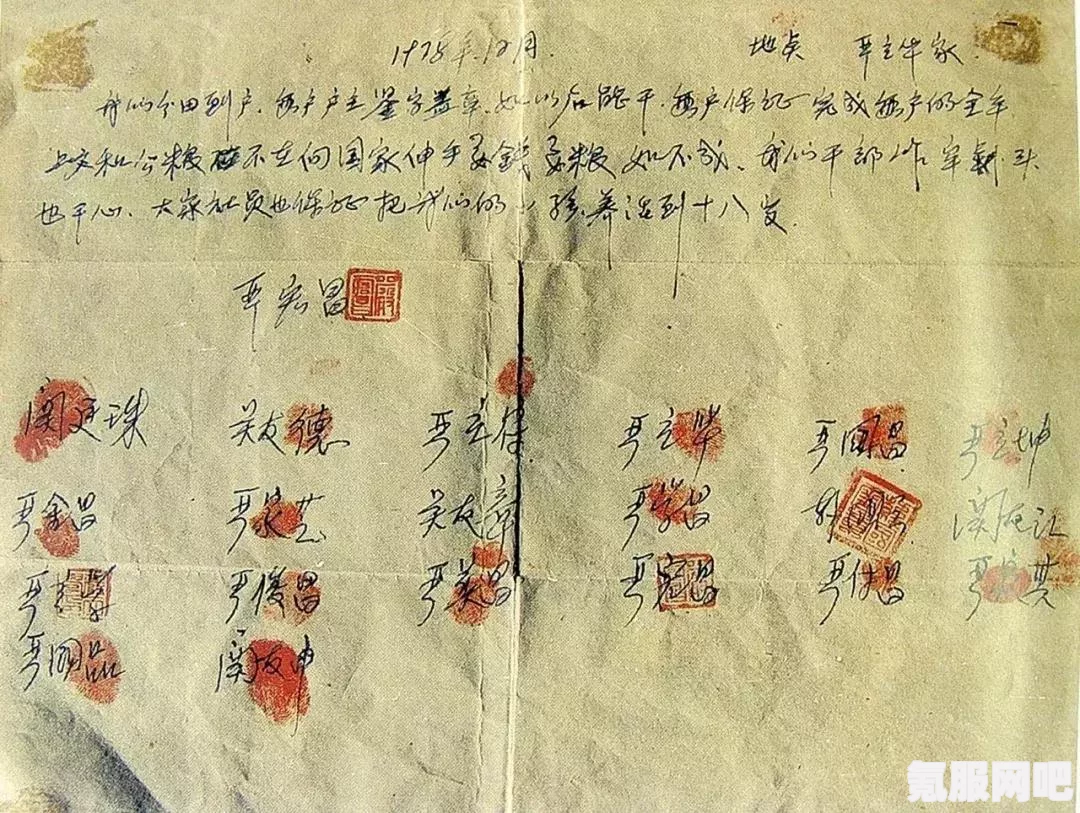 1978年12月. 地点 严立华家.
我们分田到户.每户户主鉴字盖章.如以后能干.每户保证完成每户的全年
上交和公粮 不在向国家伸手要钱要粮 如不成.我们干部作牢剎头
也干心.大家社员也保证把我们的小孩.养活到十八岁.
严宏昌
关廷珠 关友德 严立符 严立华 严国昌 严立坤
严金昌 严家芝 关友章 严学昌 韩国云 关友江
严立学 严俊昌 严美昌 严宏昌 严付昌 严家其
严国品 关友申
氪服网吧